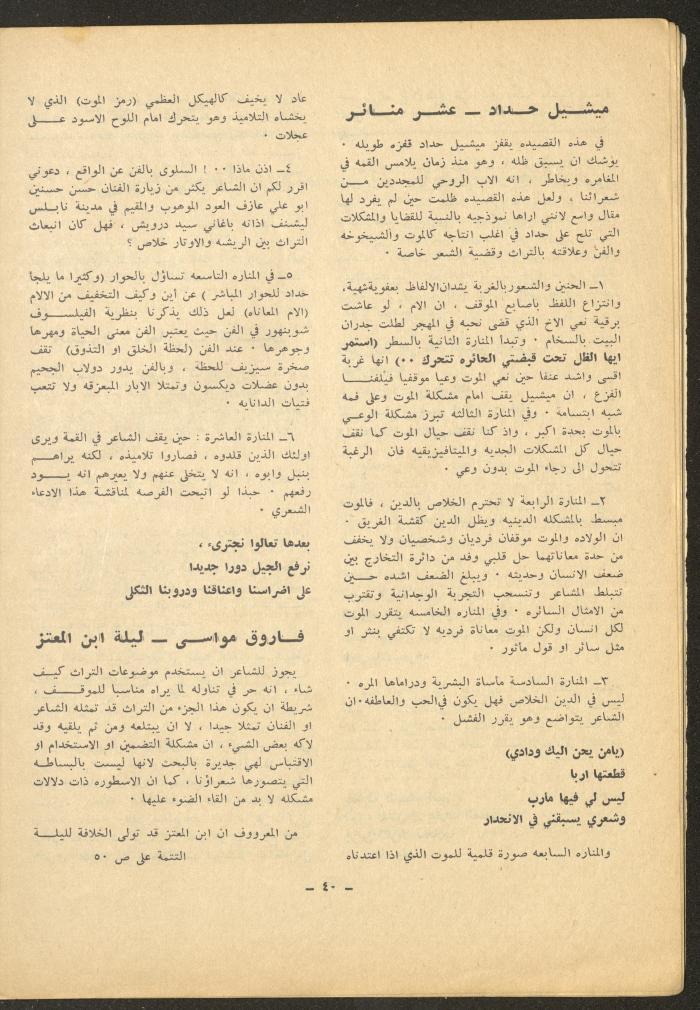 ميشيل حداد ــ عشر منائر
في هذه القصيده يقفز ميشيل حداد قفزه طويله ٠
يوشك ان يسبق ظله ، وهو منذ زمان يلامس القمه في
المغامره ويخاطر ، انه الاب الروحي للمجددين مــن
شعرائنا ، ولعل هذه القصيده ظلمت حين لم يفرد لها
مقال واسع لانني اراها نموذجيه بالنسبة للقضايا والمشكلات
التي تلح على حداد في اغلب انتاجه كالموت والشيخوخه
والفن وعلاقته بالتراث وقضية الشعر خاصة ٠
١ــ الحنين والشعور بالغربة يشدان الالفاظ بعفوية شهية،
وانتزاع اللفظ باصابع الموقف ، ان الام ، لو عاشت
برقية نعي الاخ الذي قضى نحبه في المهجر لطلت جدران
البيت بالسخام ٠ وتبدأ المنارة الثانية بالسطر (استمر
ايها الظل تحت قبضتي الحائره تتحرك ٠٠) انها غربة
اقسى واشد عنفا حين نعي الموت وعيا موقفيا فيلفنــا
الفزع ، ان ميشيل يقف امام مشكلة الموت وعلى فمه
شبه ابتسامة ٠ وفي المنارة الثالثه تبرز مشكلة الوعـي
بالموت بحدة اكبر ، واذ كنا نقف حيال الموت كما نقف
حيال كل المشكلات الجديه والميتافيزيقيه فان الرغبة
تتحول الى رجاء الموت بدون وعي ٠
٢ــ المنارة الرابعة لا تحترم الخلاص بالدين ، فالموت
مبسط بالمشكله الدينيه ويظل الدين كقشة الغريق ٠
ان الولاده والموت موقفان فرديان وشخصيان ولا يخفف
من حدة معاناتهما حل قلبي وفد من دائرة التخارج بين
ضعف الانسان وحديثه ٠ ويبلغ الضعف اشده حــين
تتبلط المشاعر وتنسحب التجربة الوجدانية وتقترب
من الامثال السائره ٠ وفي المناره الخامسه يتقرر الموت
لكل انسان ولكن الموت معاناة فرديه لا تكتفي بنثر او
مثل سائر او قول ماثور ٠
٣ــ المنارة السادسة ماساة البشرية ودراماها المره ٠
ليس في الدين الخلاص فهل يكون في الحب والعاطفه٠ ان
الشاعر يتواضع وهو يقرر الفشل ٠
(يامن يحن اليك ودادي)
قطعتها اربا
ليس لي فيها مأرب
وشعري يسبقني في الانحدار
والمناره السابعه صورة قلمية للموت الذي اذا اعتدناه
عاد لا يخيف كالهيكل العظمي (رمز الموت) الذي لا
يخشاه التلاميذ وهو يتحرك امام اللوح الاسود عــلى
عجلات ٠
٤ــ اذن ماذا ٠٠ ! السلوى بالفن عن الواقع ، دعوني
اقرر لكم ان الشاعر يكثر من زيارة الفنان حسن حسنين
ابو علي عازف العود الموهوب والمقيم في مدينة نابـلس
ليشنف اذانه باغاني سيد درويش ، فهل كان انبعاث
التراث بين الريشه والاوتار خلاص ؟
٥ــ في المناره التاسعه تساؤل بالحوار (وكثيرا ما يلجأ
حداد للحوار المباشر ) عن أين وكيف التخفيف من الالام
(الام المعاناه) لعل ذلك يذكرنا بنظرية الفيلســوف
شوبنهور في الفن حيث يعتبر الفن معنى الحياة ومهرها
وجوهرها ٠ عند الفن (لحظة الخلق او التذوق) تقف
صخرة سيزيف للحظة ، وبالفن يدور دولاب الجحيم
بدون عضلات ديكسون وتمتلا الابار المبعزقه ولا تتعب
فتيات الدانايه ٠
٦ــ المنارة العاشرة : حين يقف الشاعر في القمة ويرى
اولئك الذين قلدوه ، فصاروا تلاميذه ، لكنه يراهــم
بنبل وابوه ، انه لا يتخلى عنهم ولا يعيرهم انه يــود
رفعهم ٠ حبذا لو اتيحت الفرصه لمناقشة هذا الادعاء
الشعري ٠
بعدها تعالوا نجترىء ،
نرفع الجيل دورا جديدا
على اضراسنا واعناقنا ودروبنا الثكلى
فــاروق مواسـى ــ ليلة ابن المعتز
يجوز للشاعر ان يستخدم موضوعات التراث كيـف
شاء ، انه حر في تناوله لما يراه مناسبا للموقــف ،
شريطة ان يكون هذا الجزء من التراث قد تمثله الشاعر
او الفنان تمثلا جيدا ، لا ان يبتلعه ومن ثم يلقيه وقد
لاكه بعض الشيء ، ان مشكلة التضمين او الاستخدام او
الاقتباس لهي جديرة بالبحث لانها ليست بالبساطه
التي يتصورها شعراؤنا ، كما ان الاسطوره ذات دلالات
مشكله لا بد من القاء الضوء عليها ٠
من المعرووف ان ابن المعتز قد تولى الخلافة لليلـة
التتمة على ص ٥٠
ــ ٤٠ ــ